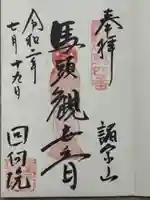 奉拝
諸宗山
馬頭観世音
回向院
令和二年
七月十九日